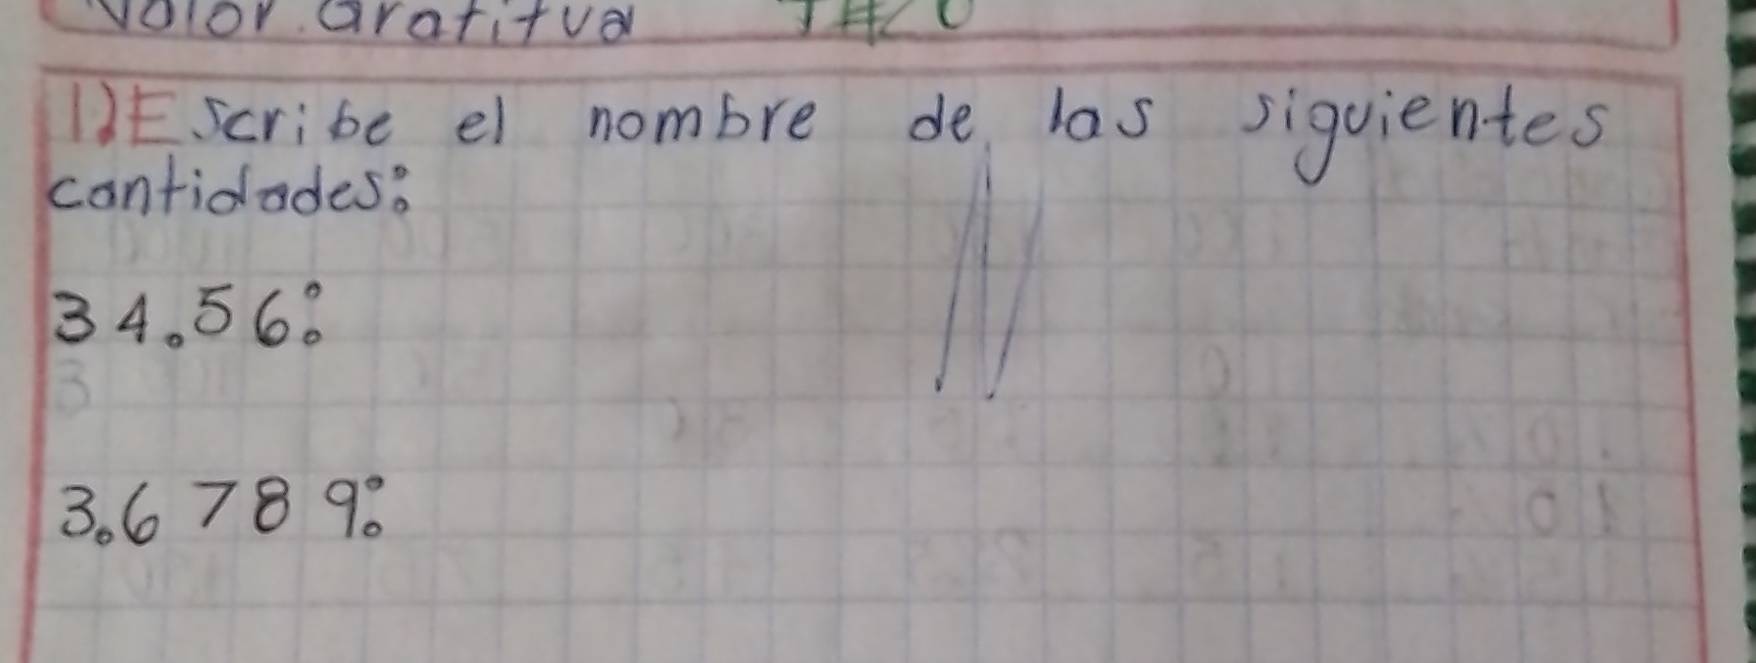 Valor. Gratitud
1) Escribe el nombre de las siguientes
cantidades:
34.56:
3.6789: